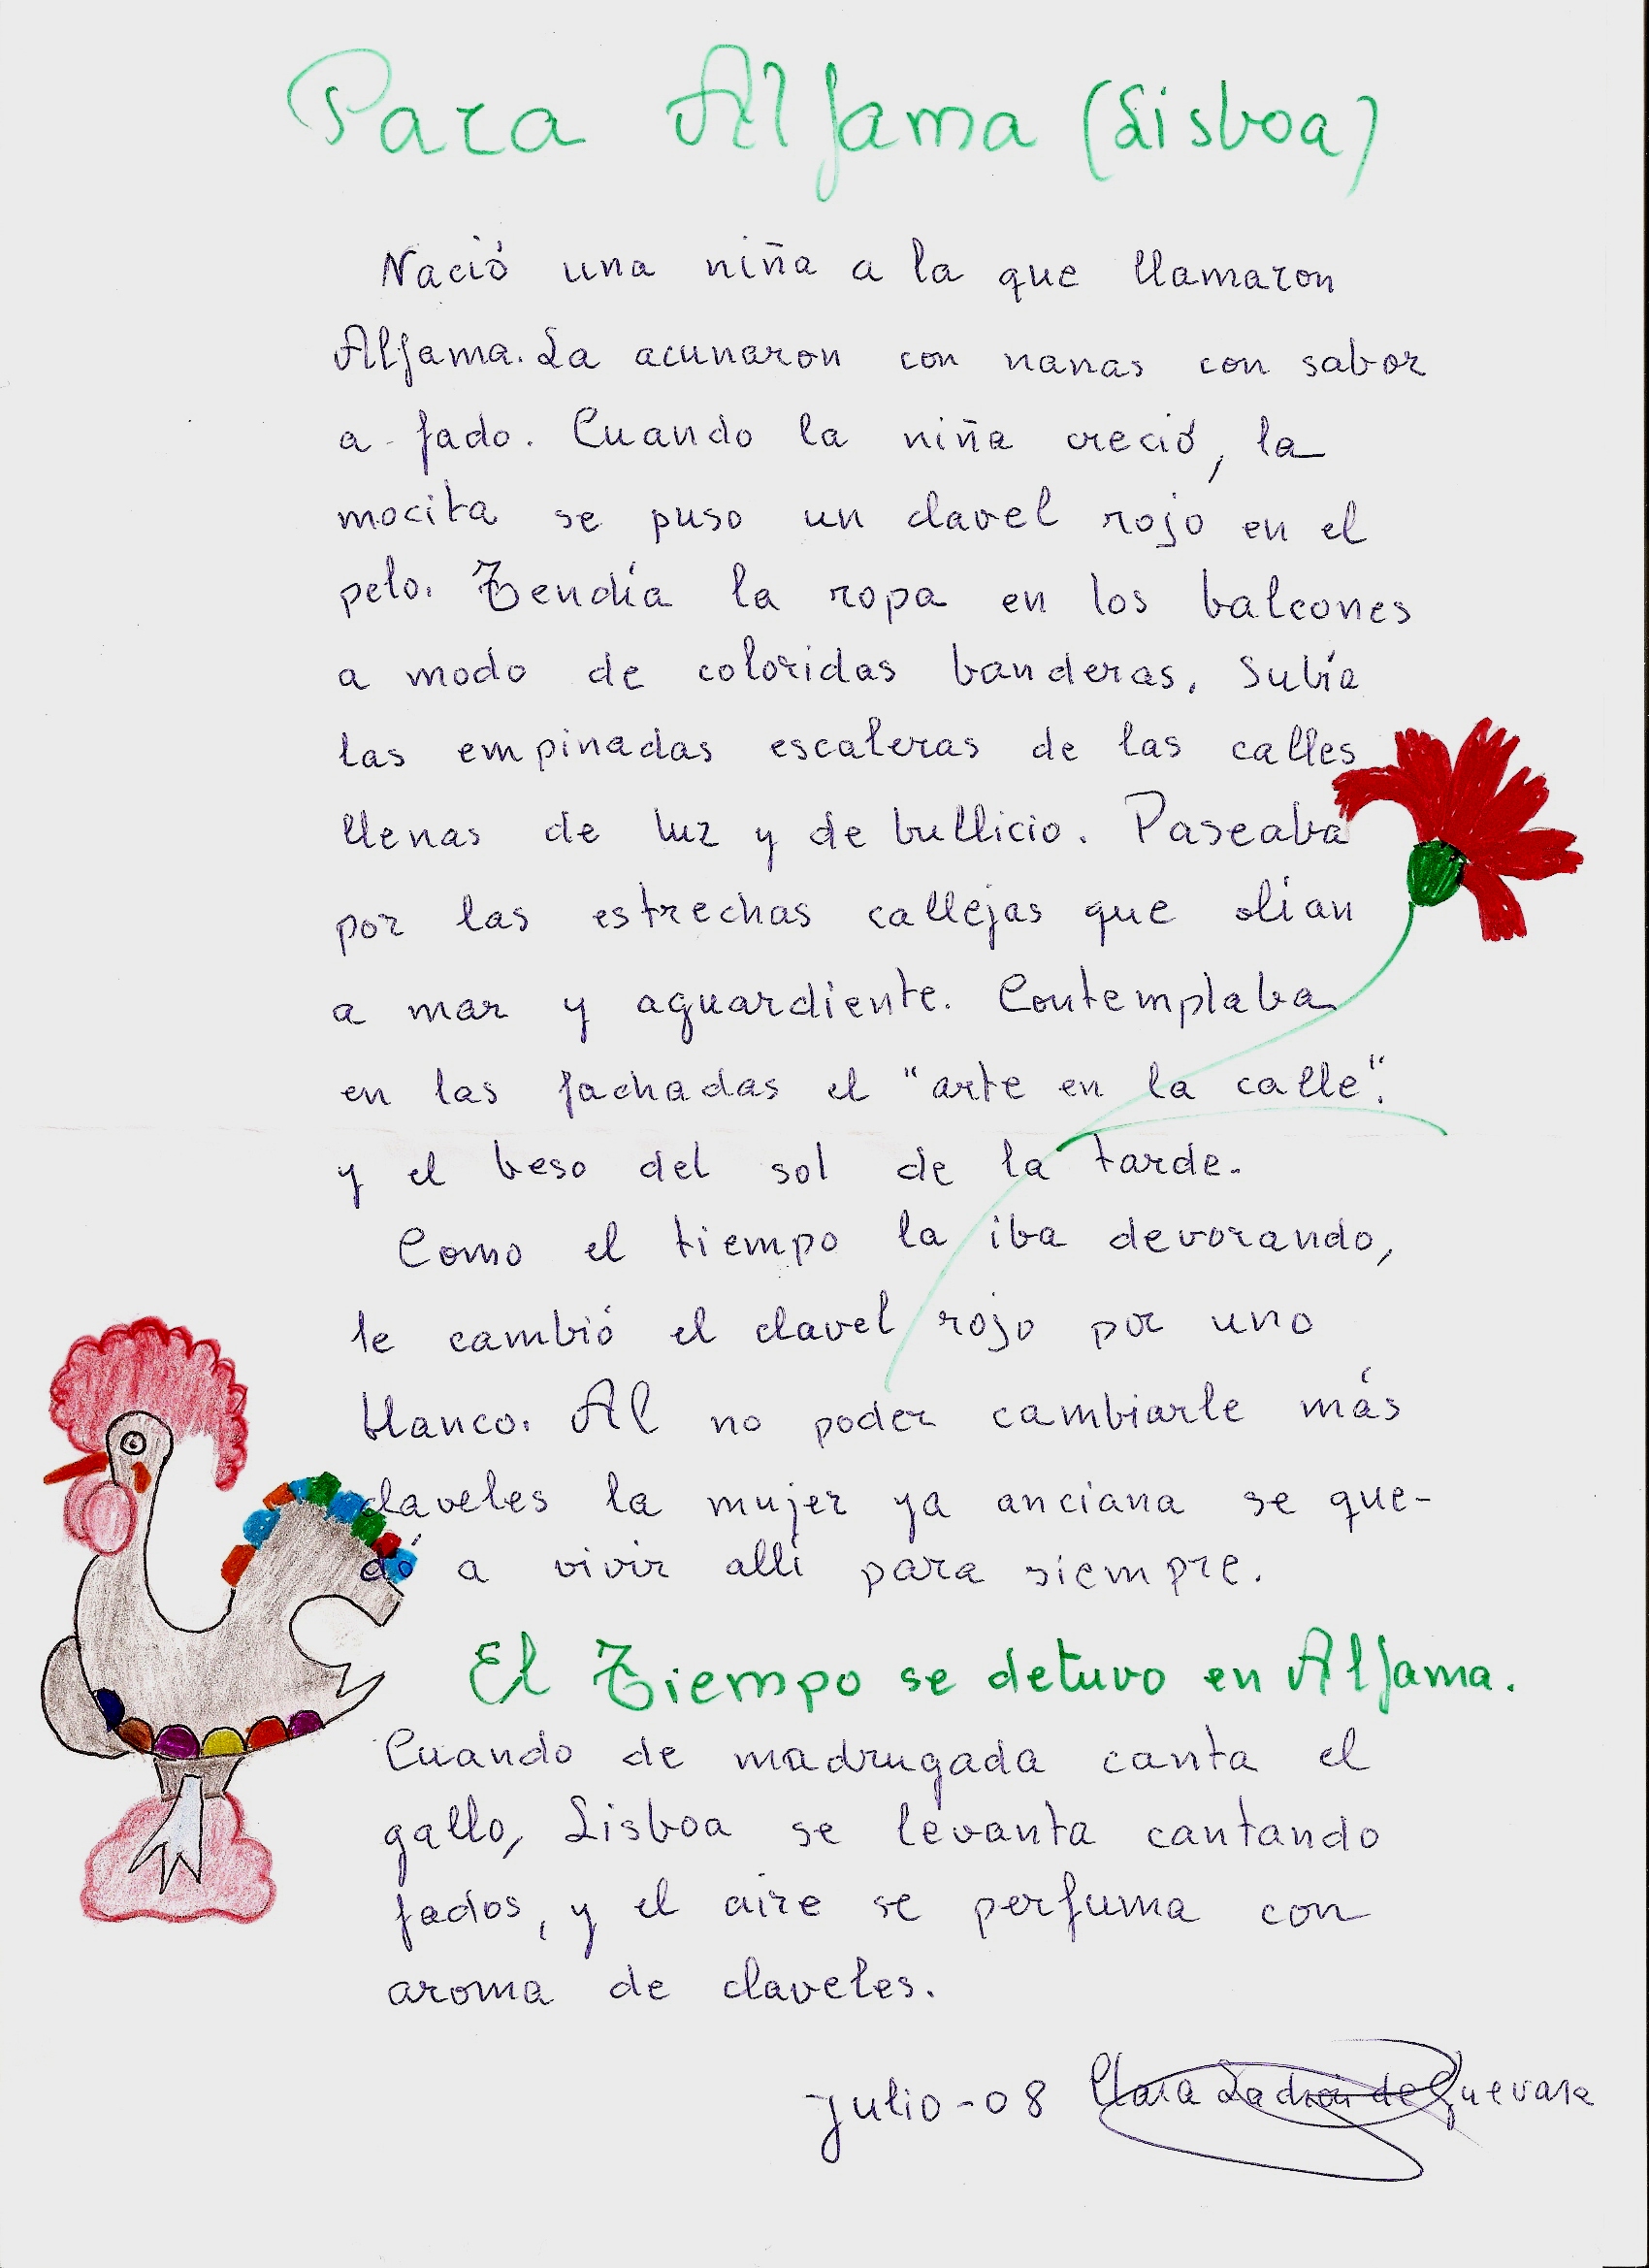 Para Alfama (Lisboa)
Nació una niña a la que llamaron
Alfama. La acunaron con nanas con sabor
a fado. Cuando la niña creció, la
mocita se puso un clavel rojo en el
pelo. Tendía la ropa en los balcones
a modo de coloridas banderas. Subía
las empinadas escaleras de las calles
llenas de luz y de bullicio. Paseaba
por las estrechas callejas que olían
a mar y aguardiente. Contemplaba
en las fachadas el "arte en la calle".
y el beso del sol de la tarde.
Como el tiempo la iba devorando,
le cambió el clavel rojo por uno
blanco. Al no poder cambiarle más
claveles la mujer ya anciana se que-
dó a vivir allí para siempre.
El Tiempo se detuvo en Alfama.
Cuando de madrugada canta el
gallo, Lisboa se levanta cantando
fados, y el aire se perfuma con
aroma de claveles.
Julio-08 Clara Ladrón de Guevara